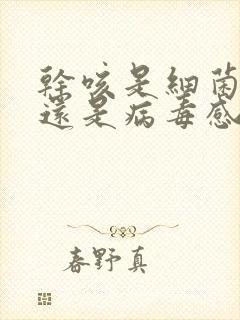 幹咳是細菌
還是病毒感
春野真